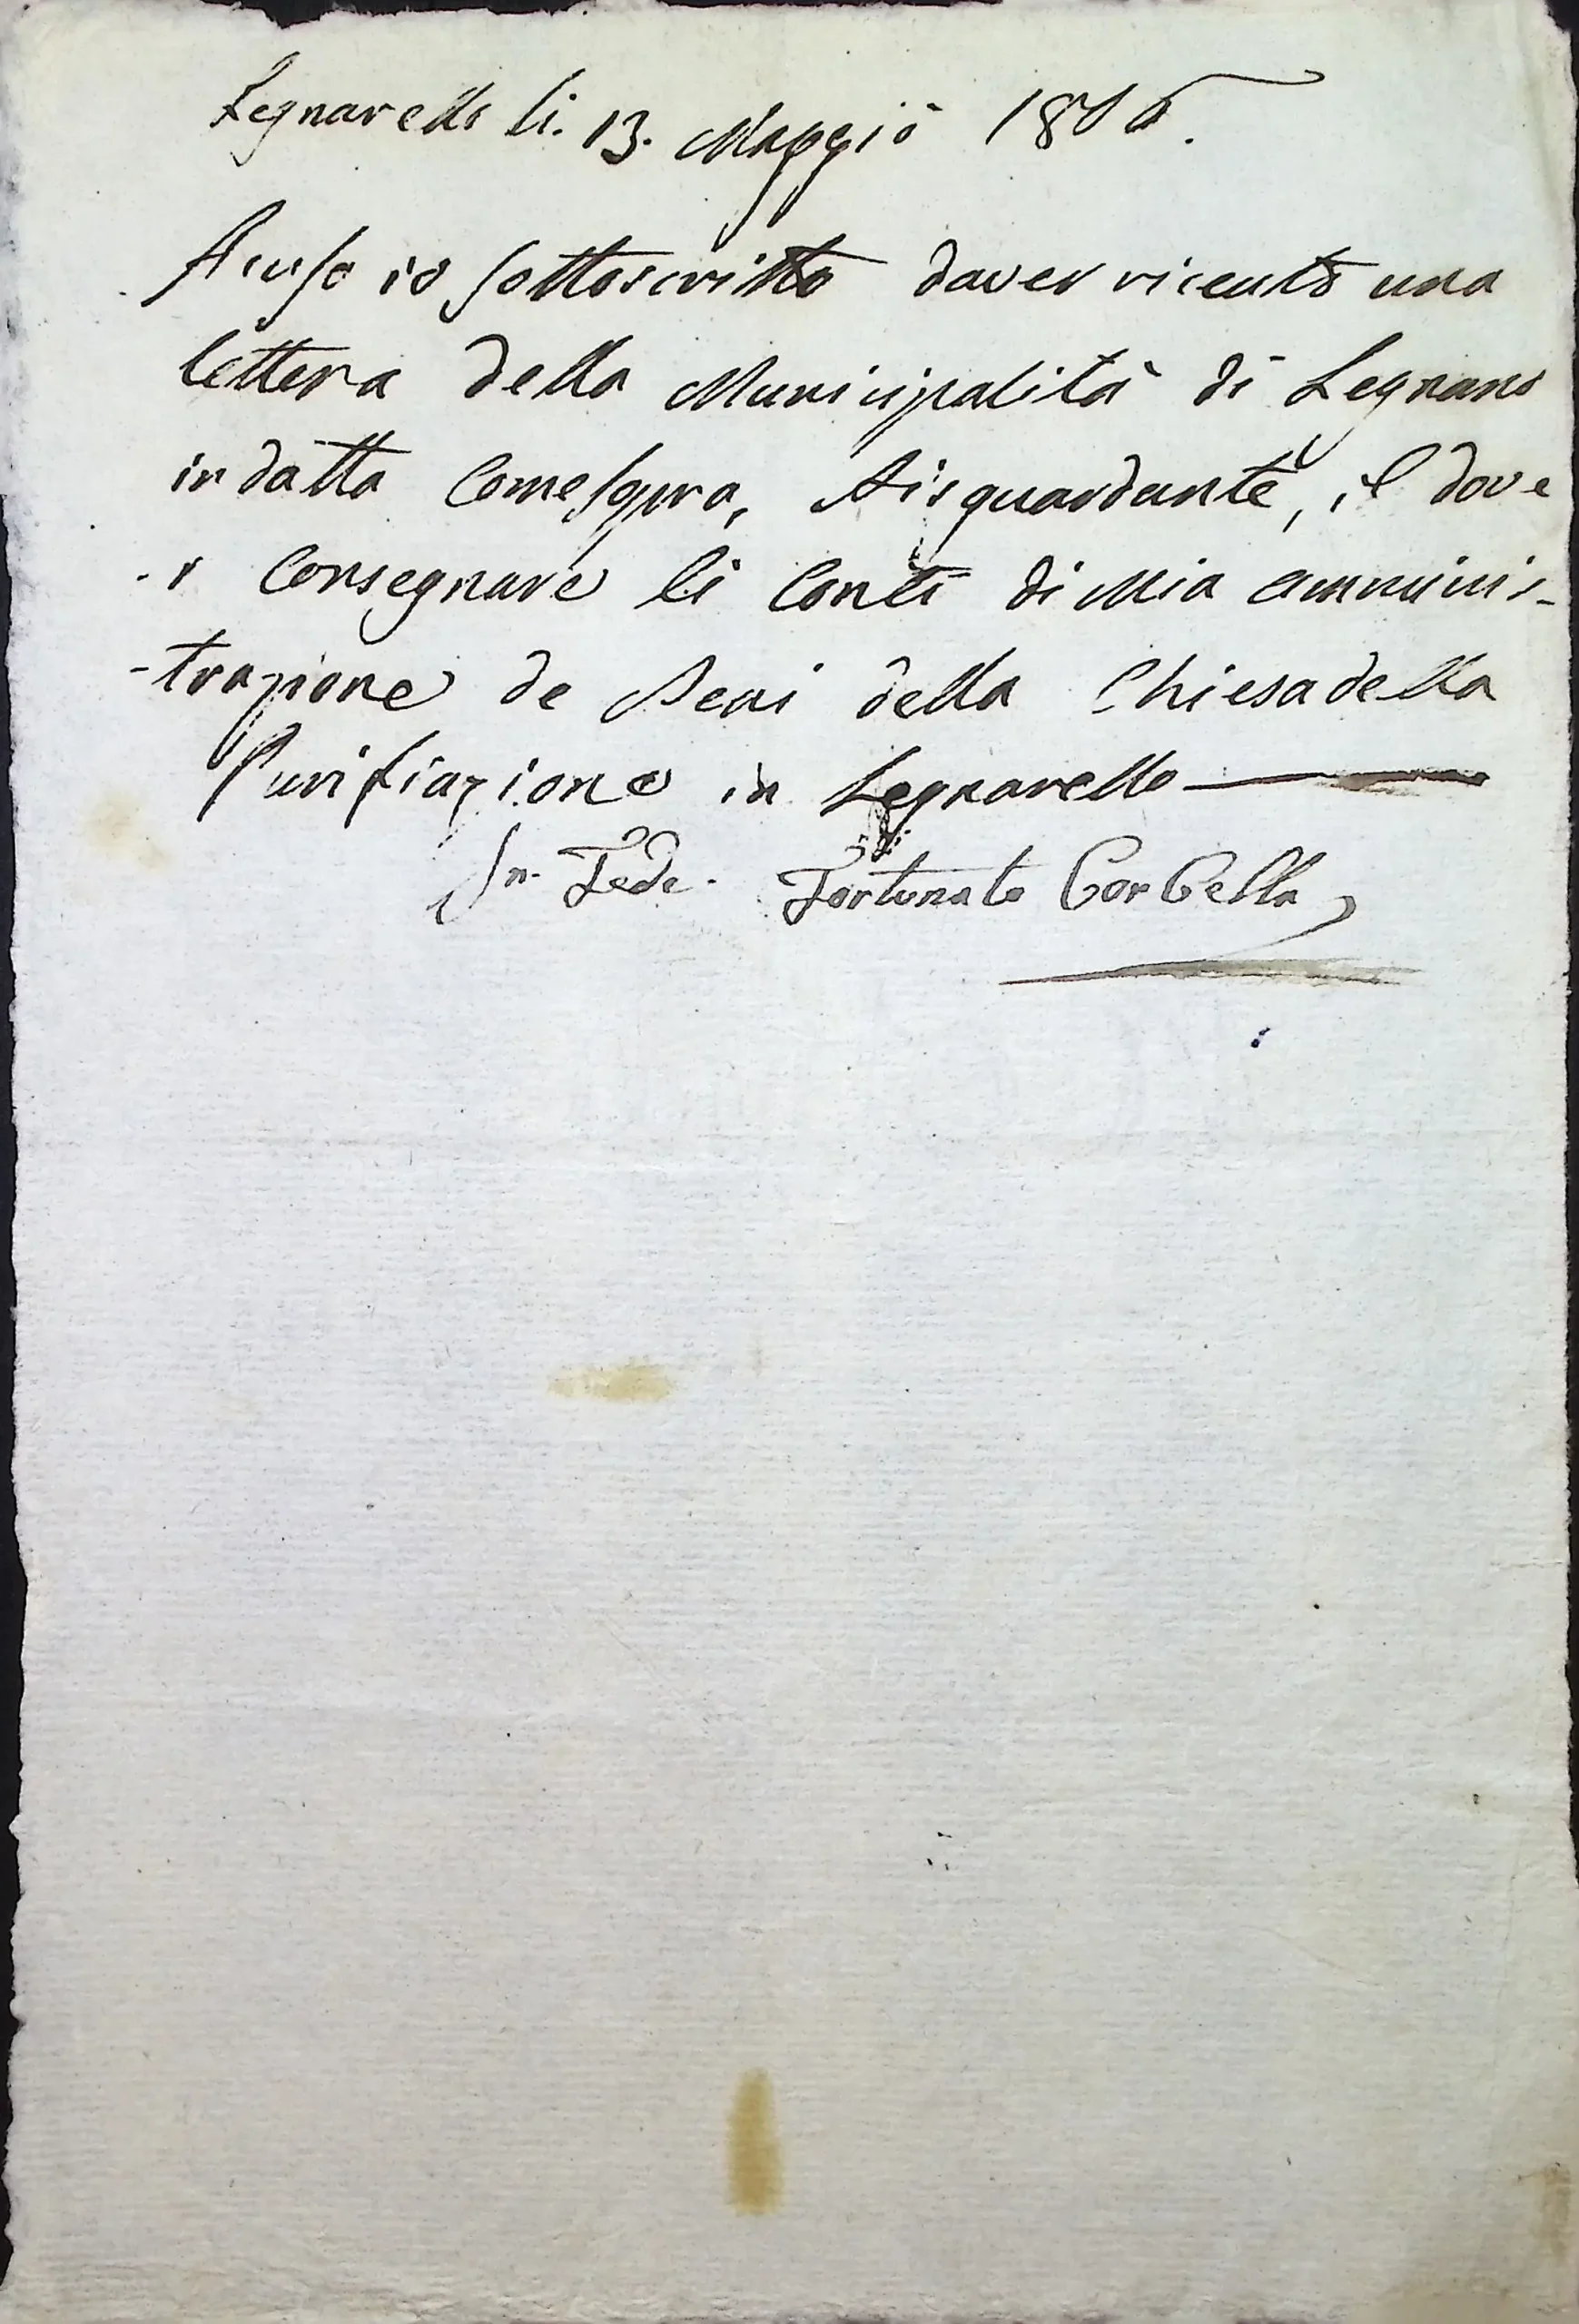 Legnarello li. 13. Maggio 1806.
Acuso io sottoscritto daver riceuto una
lettera della Municipalità di Legnano
in datta Comesopra, Risguardante, il dove
-r Consegnare li Conti di Mia amminis-
-trazione de Beni della Chiesa della
Purificazione in Legnarello
In Fede. Fortunato Corbella